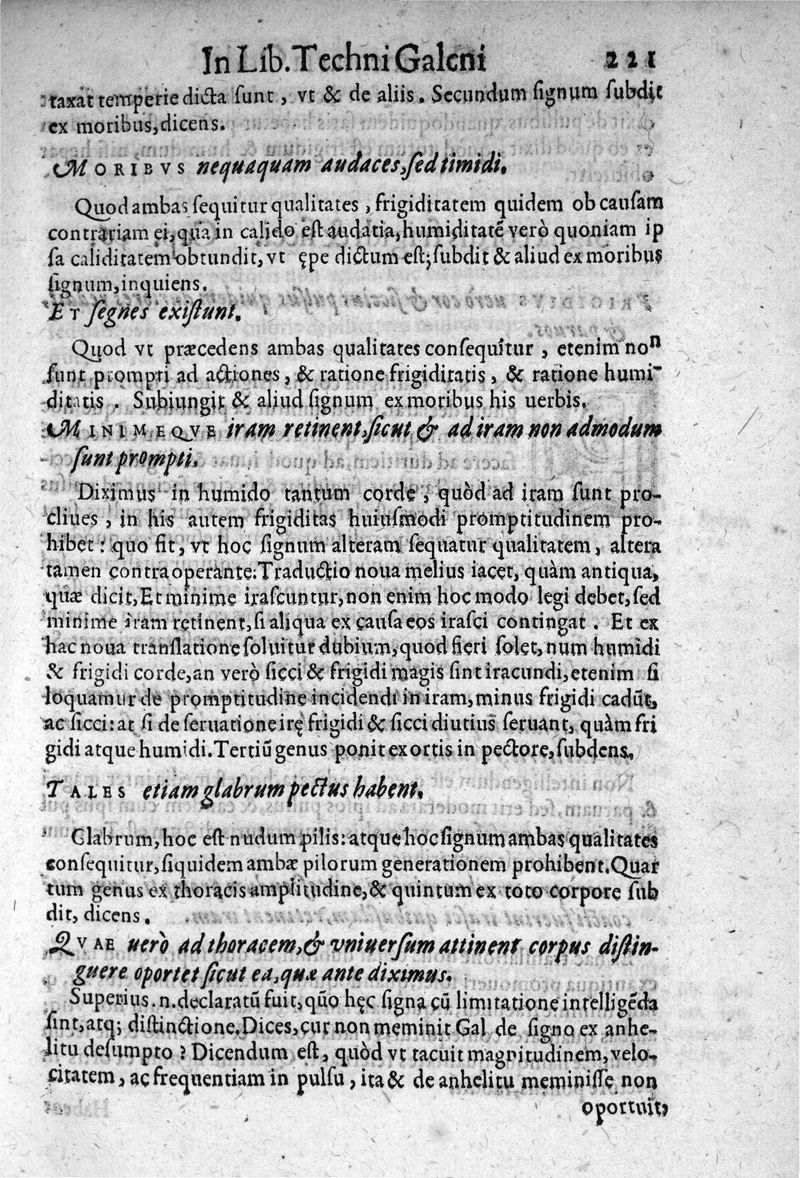 In Lib. Techni Galeni 221
taxat temperie dicta sunt, vt & de aliis. Secundum signum subdit
ex moribus, dicens.
MORIBVS nequaquam audaces, sed timidi.
Quod ambas sequitur qualitates, frigiditatem quidem ob causam
contrariam ei, quia in calido est audatia, humiditatē verò quoniam ip
sa caliditatem obtundit, vt ępe dictum est; subdit & aliud ex moribus
signum, inquiens.
ET segnes existunt.
Quod vt præcedens ambas qualitates consequitur, etenim non
sunt prompti ad actiones, & ratione frigiditatis, & ratione humi-
ditatis. Subiungit & aliud signum ex moribus his uerbis.
MINIMEQVE iram retinent, sicut & ad iram non admodum
sunt prompti.
Diximus in humido tantum corde, quòd ad iram sunt pro-
cliues, in his autem frigiditas huiusmodi promptitudinem pro-
hibet: quo fit, vt hoc signum alteram sequatur qualitatem, altera
tamen contra operante: Traductio noua melius iacet, quàm antiqua,
quæ dicit, Et minime irascuntur, non enim hoc modo legi debet, sed
minime iram retinent, si aliqua ex causa eos irasci contingat. Et ex
hac noua translatione soluitur dubium, quod fieri solet, num humidi
& frigidi corde, an verò sicci & frigidi magis sint iracundi, etenim si
loquamur de promptitudine incidendi in iram, minus frigidi cadūt,
ac sicci: at si de seruatione irę frigidi & sicci diutius seruant, quàm fri
gidi atque humidi. Tertiū genus ponit ex ortis in pectore, subdens.
TALES etiam glabrum pectus habent.
Glabrum, hoc est nudum pilis: atque hoc signum ambas qualitates
consequitur, siquidem ambæ pilorum generationem prohibent. Quar
tum genus ex thoracis amplitudine, & quintum ex toto corpore sub
dit, dicens.
QVAE uerò ad thoracem, & vniuersum attinent corpus distin-
guere oportet sicut ea, quæ ante diximus.
Superius.n. declaratū fuit, quō hęc signa cū limitatione intelligēda
sint, atq; distinctione. Dices, cur non meminit Gal de signo ex anhe-
litu desumpto? Dicendum est, quòd vt tacuit magnitudinem, velo-
citatem, ac frequentiam in pulsu, ita & de anhelitu meminisse non
oportuit,